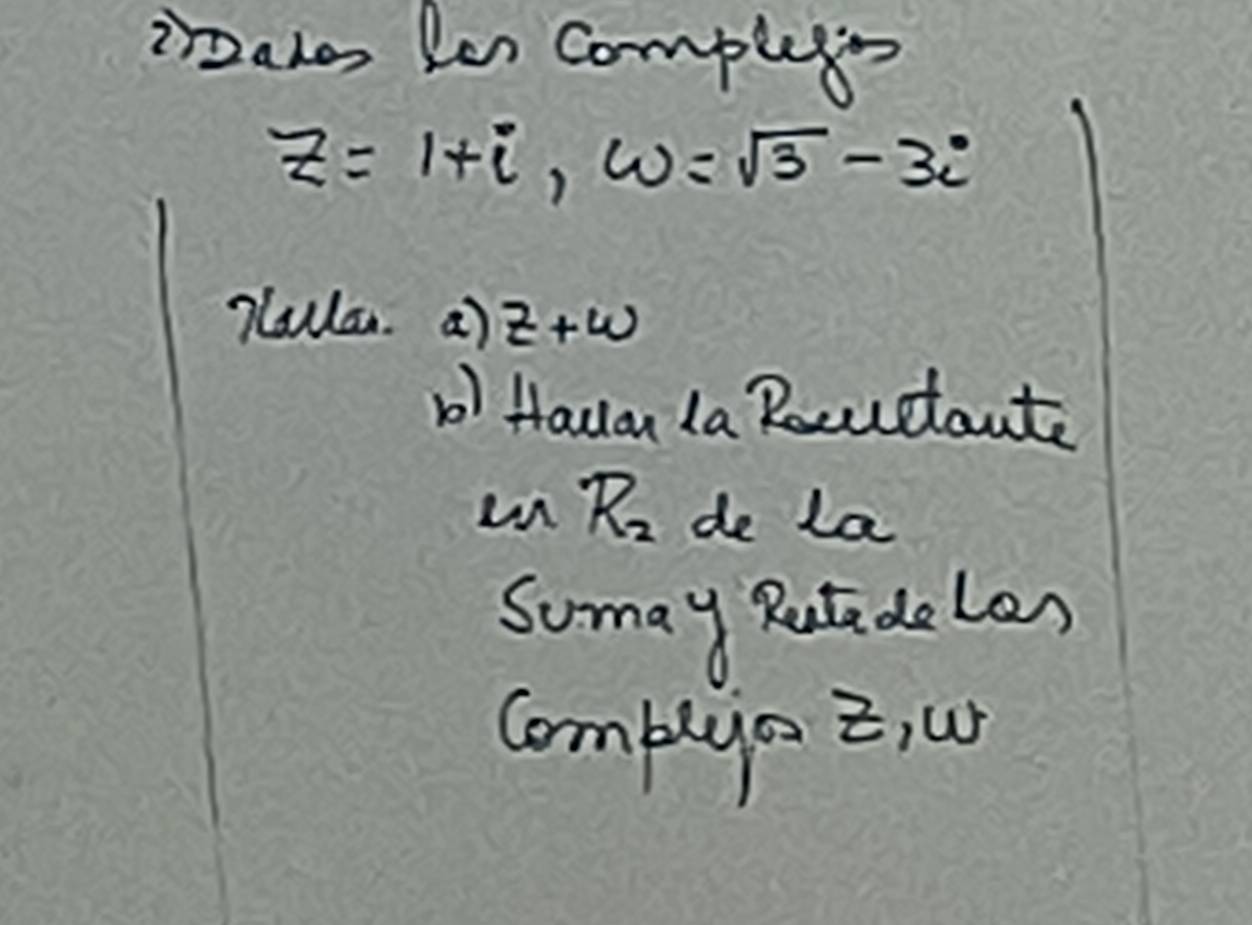 2) Dados los Complejos
Z = 1+i, w = √3 - 3i
Hallar. a) Z+w
b) Hallar la Resultante
en R₂ de la
Suma y Resta de Los
Complejos Z, w